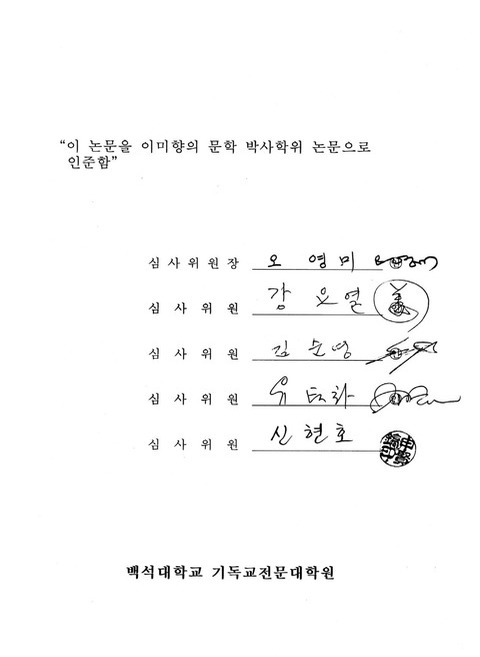 “이 논문을 이미향의 문학 박사학위 논문으로
인준함”
심사위원장 오 영 미
심 사 위 원 강 요 열
심 사 위 원 김 순 영
심 사 위 원 유 태 화
심 사 위 원 신 현 호
백석대학교 기독교전문대학원